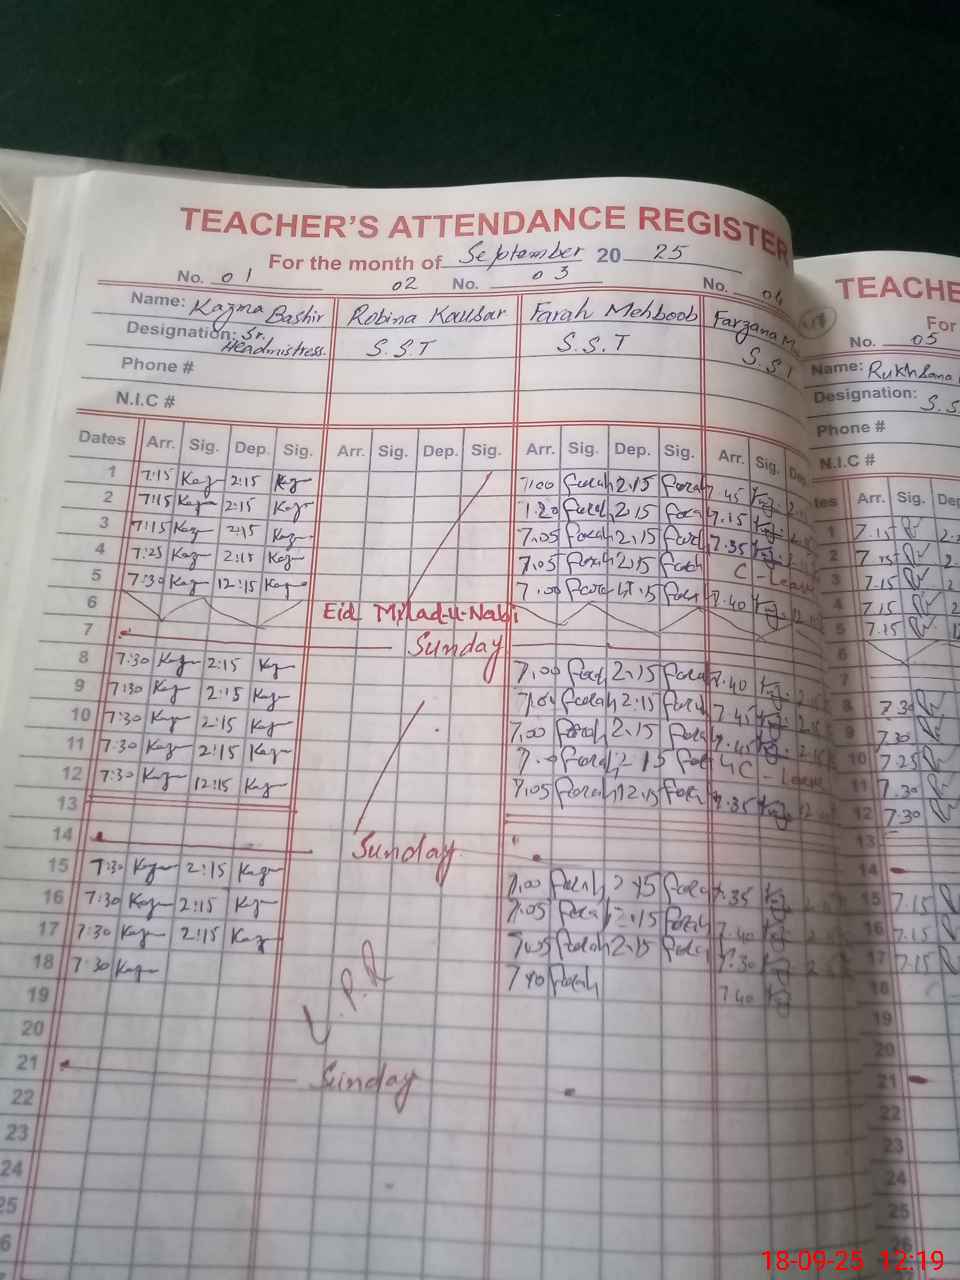 TEACHER'S ATTENDANCE REGISTER
For the month of September 2025
No. 01 02 No. 03 No. 04
Name: Kazma Bashir Robina Kausar Farah Mehboob Farzana
Designation: Sr. Headmistress S.S.T S.S.T S.S.T
Phone #
N.I.C #
Dates Arr. Sig. Dep. Sig. Arr. Sig. Dep. Sig. Arr. Sig. Dep. Sig. Arr. Sig.
1 7:15 Kaz 2:15 Kaz 7.00 Farah 2.15 Farah 7.45
2 7:15 Kaz 2:15 Kaz 7.20 Farah 2.15 Farah 7.15
3 7:15 Kaz 2:15 Kaz 7.05 Farah 2.15 Farah 7.35
4 7:25 Kaz 2:15 Kaz 7.05 Farah 2.15 Farah C-Leave
5 7:30 Kaz 12:15 Kaz 7.00 Farah 12.15 Farah 7.40
6 Eid Milad-u-Nabi
7 Sunday
8 7:30 Kaz 2:15 Kaz 7.00 Farah 2.15 Farah 7.40
9 7:30 Kaz 2:15 Kaz Farah 2.15 Farah 7.45
10 7:30 Kaz 2:15 Kaz 7.00 Farah 2.15 Farah 7.45
11 7:30 Kaz 2:15 Kaz Farah 2.15 Farah C-Leave
12 7:30 Kaz 12:15 Kaz 7.05 Farah 12.15 Farah 7.35
13
14 Sunday
15 7:30 Kaz 2:15 Kaz 7.00 Farah 2.15 Farah 7.35
16 7:30 Kaz 2:15 Kaz 7.05 Farah 2.15 Farah 7.40
17 7:30 Kaz 2:15 Kaz Farah 2.15 Farah 7.30
18 7:30 Kaz 7.40 Farah 7.40
19
L.P.R
20
21 Sunday
22
23
24
25
6
TEACHE
For
No. 05
Name: Rukhsana
Designation: S.S
Phone #
N.I.C #
tes Arr. Sig. De
1 7.15
2 7.15
3 7.15
4 7.15
5 7.15
6
7
8 7.30
9 7.30
10 7.25
11 7.30
12 7.30
13
14
15 7.15
16 7.15
17 7.15
18
19
20
21
22
23
24
25
26
18-09-25 12:19